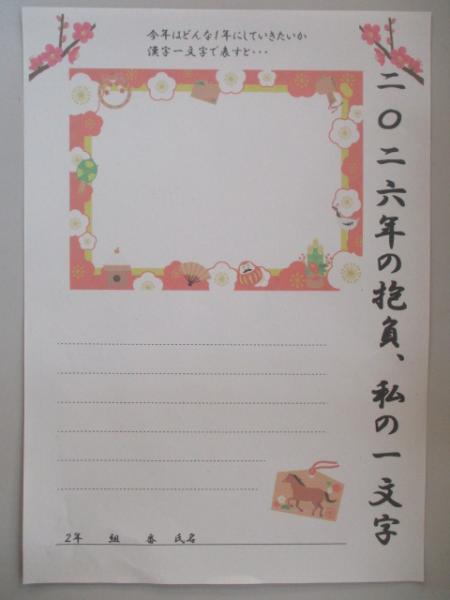 二〇二六年の抱負、私の一文字
今年はどんな1年にしていきたいか
漢字一文字で表すと・・・
2年　組　番　氏名